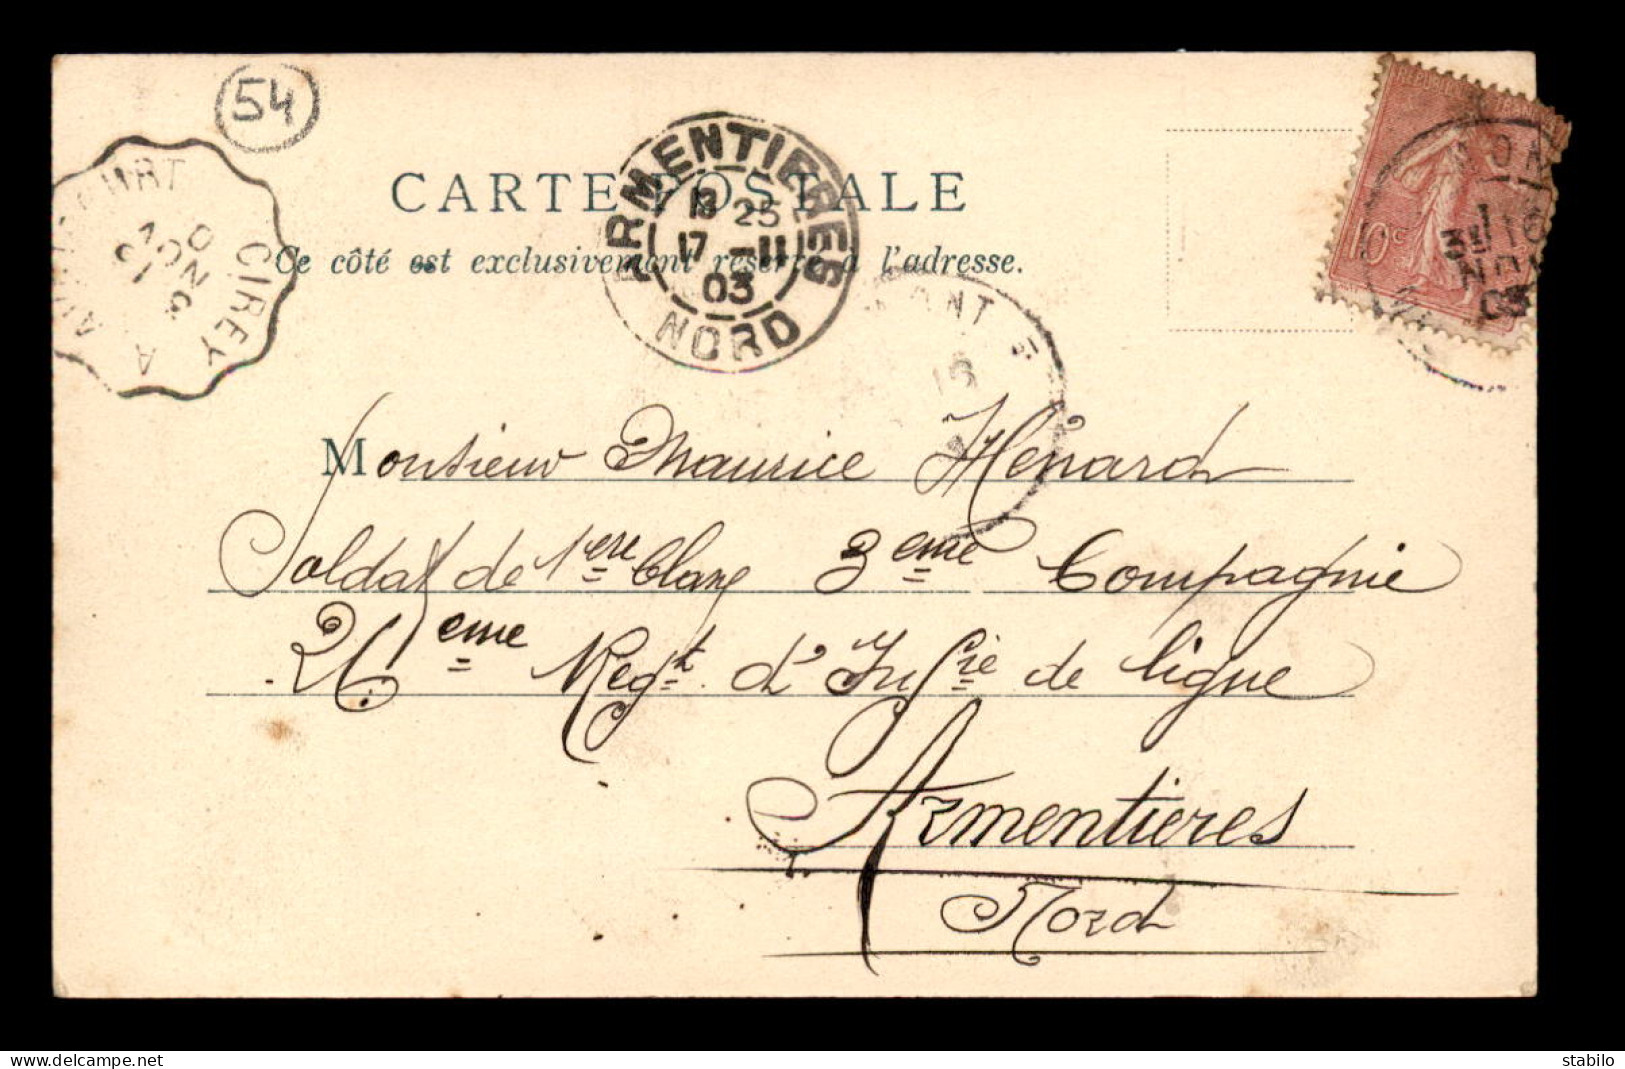 54
CARTE POSTALE
Ce côté est exclusivement réservé à l'adresse.
ARMENTIERES
18 25
17 -11
03
NORD
CIREY
A
10c
Monsieur Maurice Hénard
Soldat de 1ere Classe 3eme Compagnie
26eme Regt d'Infrie de ligne
Armentieres
Nord
delcampe.net
stabilo